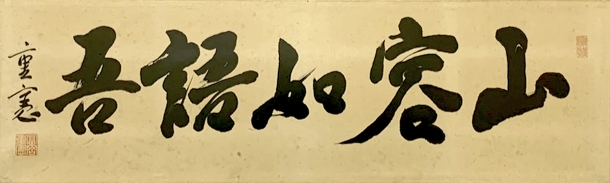 山容如語吾
重憲